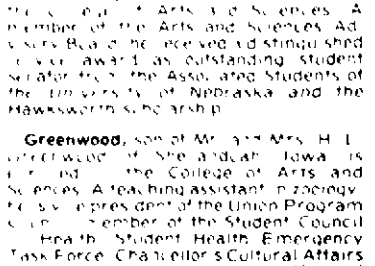 of Arts and Sciences. A
member of the Arts and Sciences Ad
visory Board he received a distinguished
service award as outstanding student
senator from the Associated Students of
the University of Nebraska and the
Hawksworth scholarship.
Greenwood, son of Mr. and Mrs. H. L.
Greenwood of Shenandoah, Iowa is
the College of Arts and
Sciences. A teaching assistant in zoology,
he is vice president of the Union Program
member of the Student Council
Health Student Health Emergency
Task Force Chancellor's Cultural Affairs